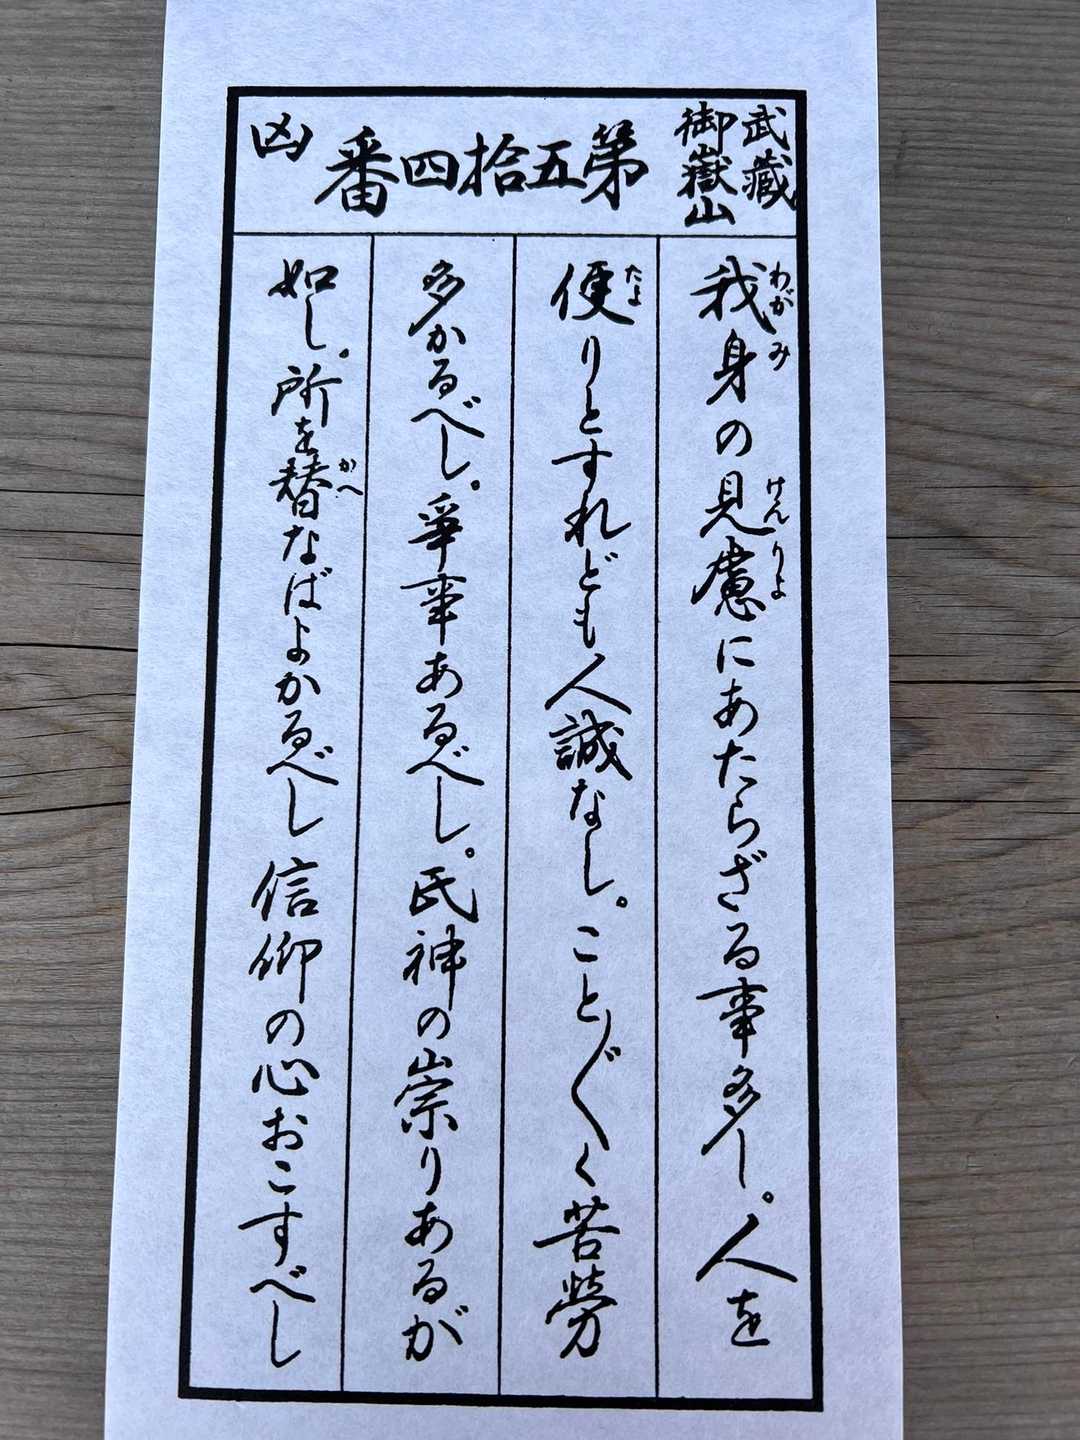 武蔵
御嶽山
第五拾四番
凶
我身の見慮にあたらざる事多し。人を
わがみ
けんりよ
便りとすれども人誠なし。こと〲く苦労
たよ
多かるべし。爭事あるべし。氏神の崇りあるが
如し。所を替なばよかるべし信仰の心おこすべし
かへ